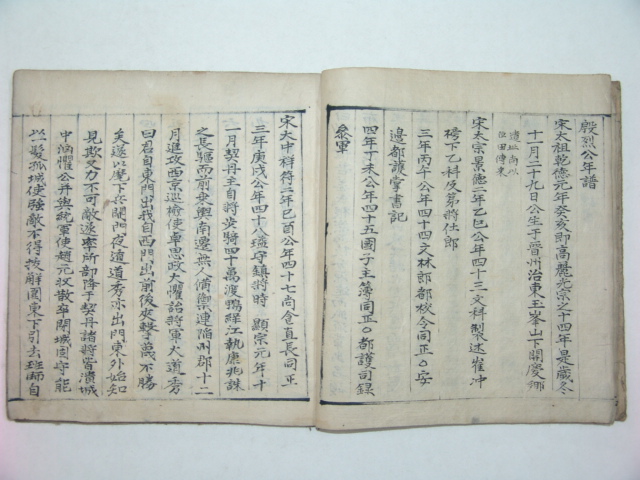 殷烈公年譜
宋太祖乾德元年癸亥即高麗光宗之十四年是歲冬
十一月二十九日公生于晋州治東玉峯山下開慶鄉
遺址尚以
位田傳來
宋太宗景德二年乙巳公年四十三文科製述崔冲
榜下乙科及第將仕郎
三年丙午公年四十四文林郎都校令同正○安
邊都護掌書記
四年丁未公年四十五國子主簿同正○都護司錄
叅軍
宋大中祥符二年己酉公年四十七尚舍直長同正
三年庚戌公年四十八猛守鎮將時 顯宗元年十
一月契丹主自將步騎四十萬渡鴨綠江執康兆誅
之長驅而前乘輿南遷無人備禦連陷州郡十二
月進攻西京巡檢使卓思政大懼詒將軍大道秀
曰君自東門出我自西門出前後夾擊蔑不勝
矣遂以麾下兵開門夜遁道秀亦出門東外始知
見欺又力不可敵遂率所部降于契丹諸將皆潰城
中洶懼公幷與統軍使趙元收散卒閉城固守能
以髮孤城使強敵不得拔解圍東下引去班師自